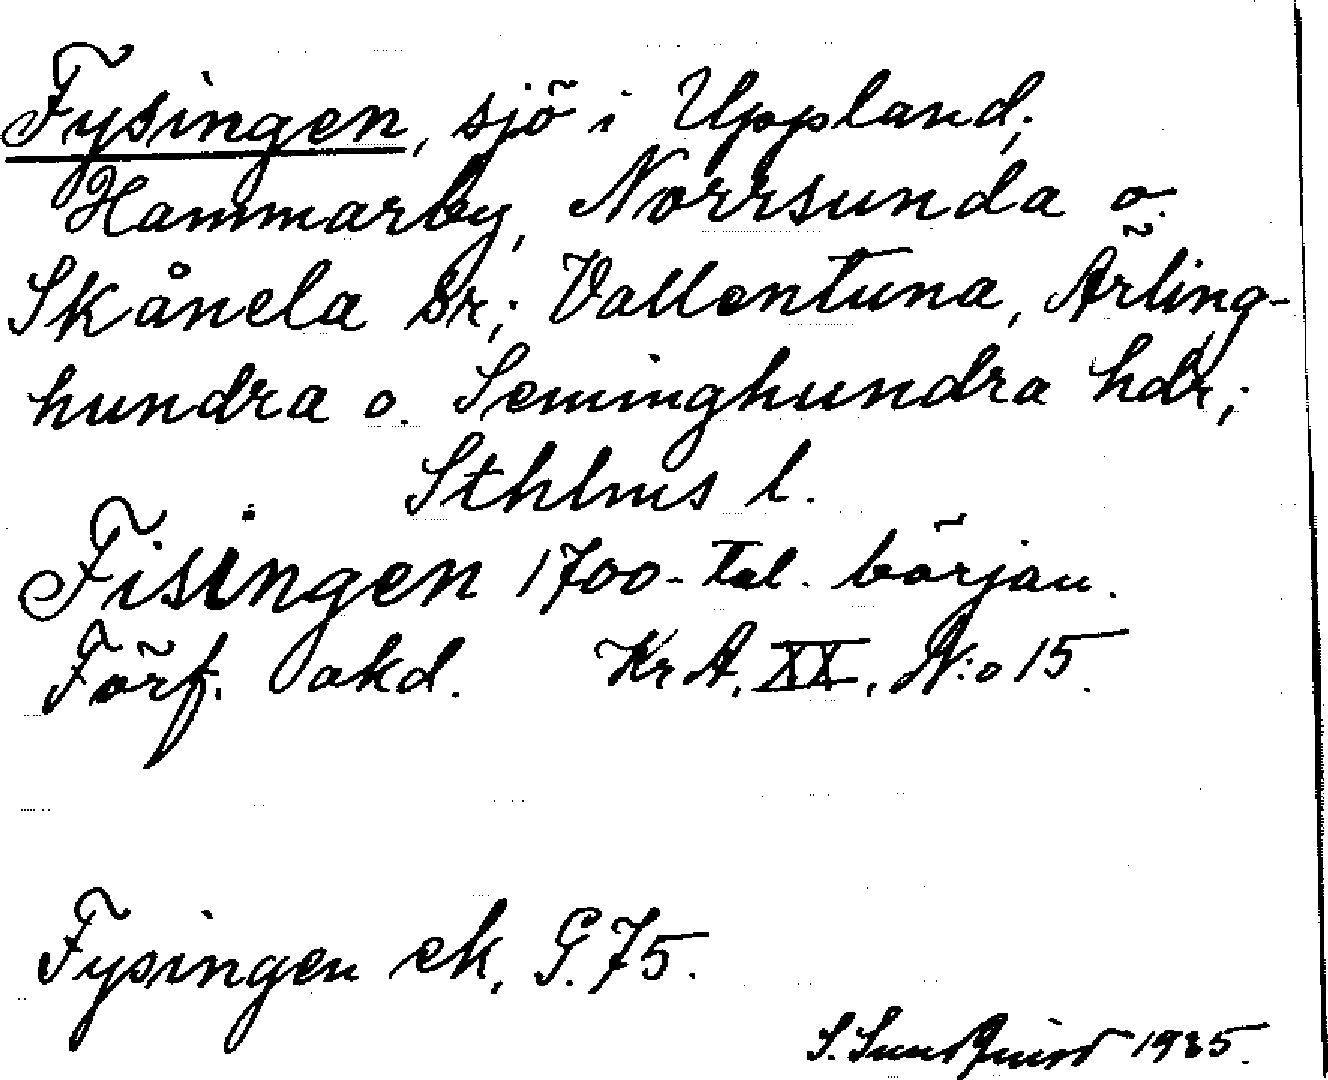 Fysingen, sjö i Uppland;
Hammarby, Norrsunda o.
Skånela sr; Vallentuna, Ärling-
hundra o. Seminghundra hdr;
Sthlms l.
Fisingen 1700-tal. början.
Förf. okd. KrA. XX, N:o 15.
Fysingen ek. G. 75.
S. Sundquist 1935.